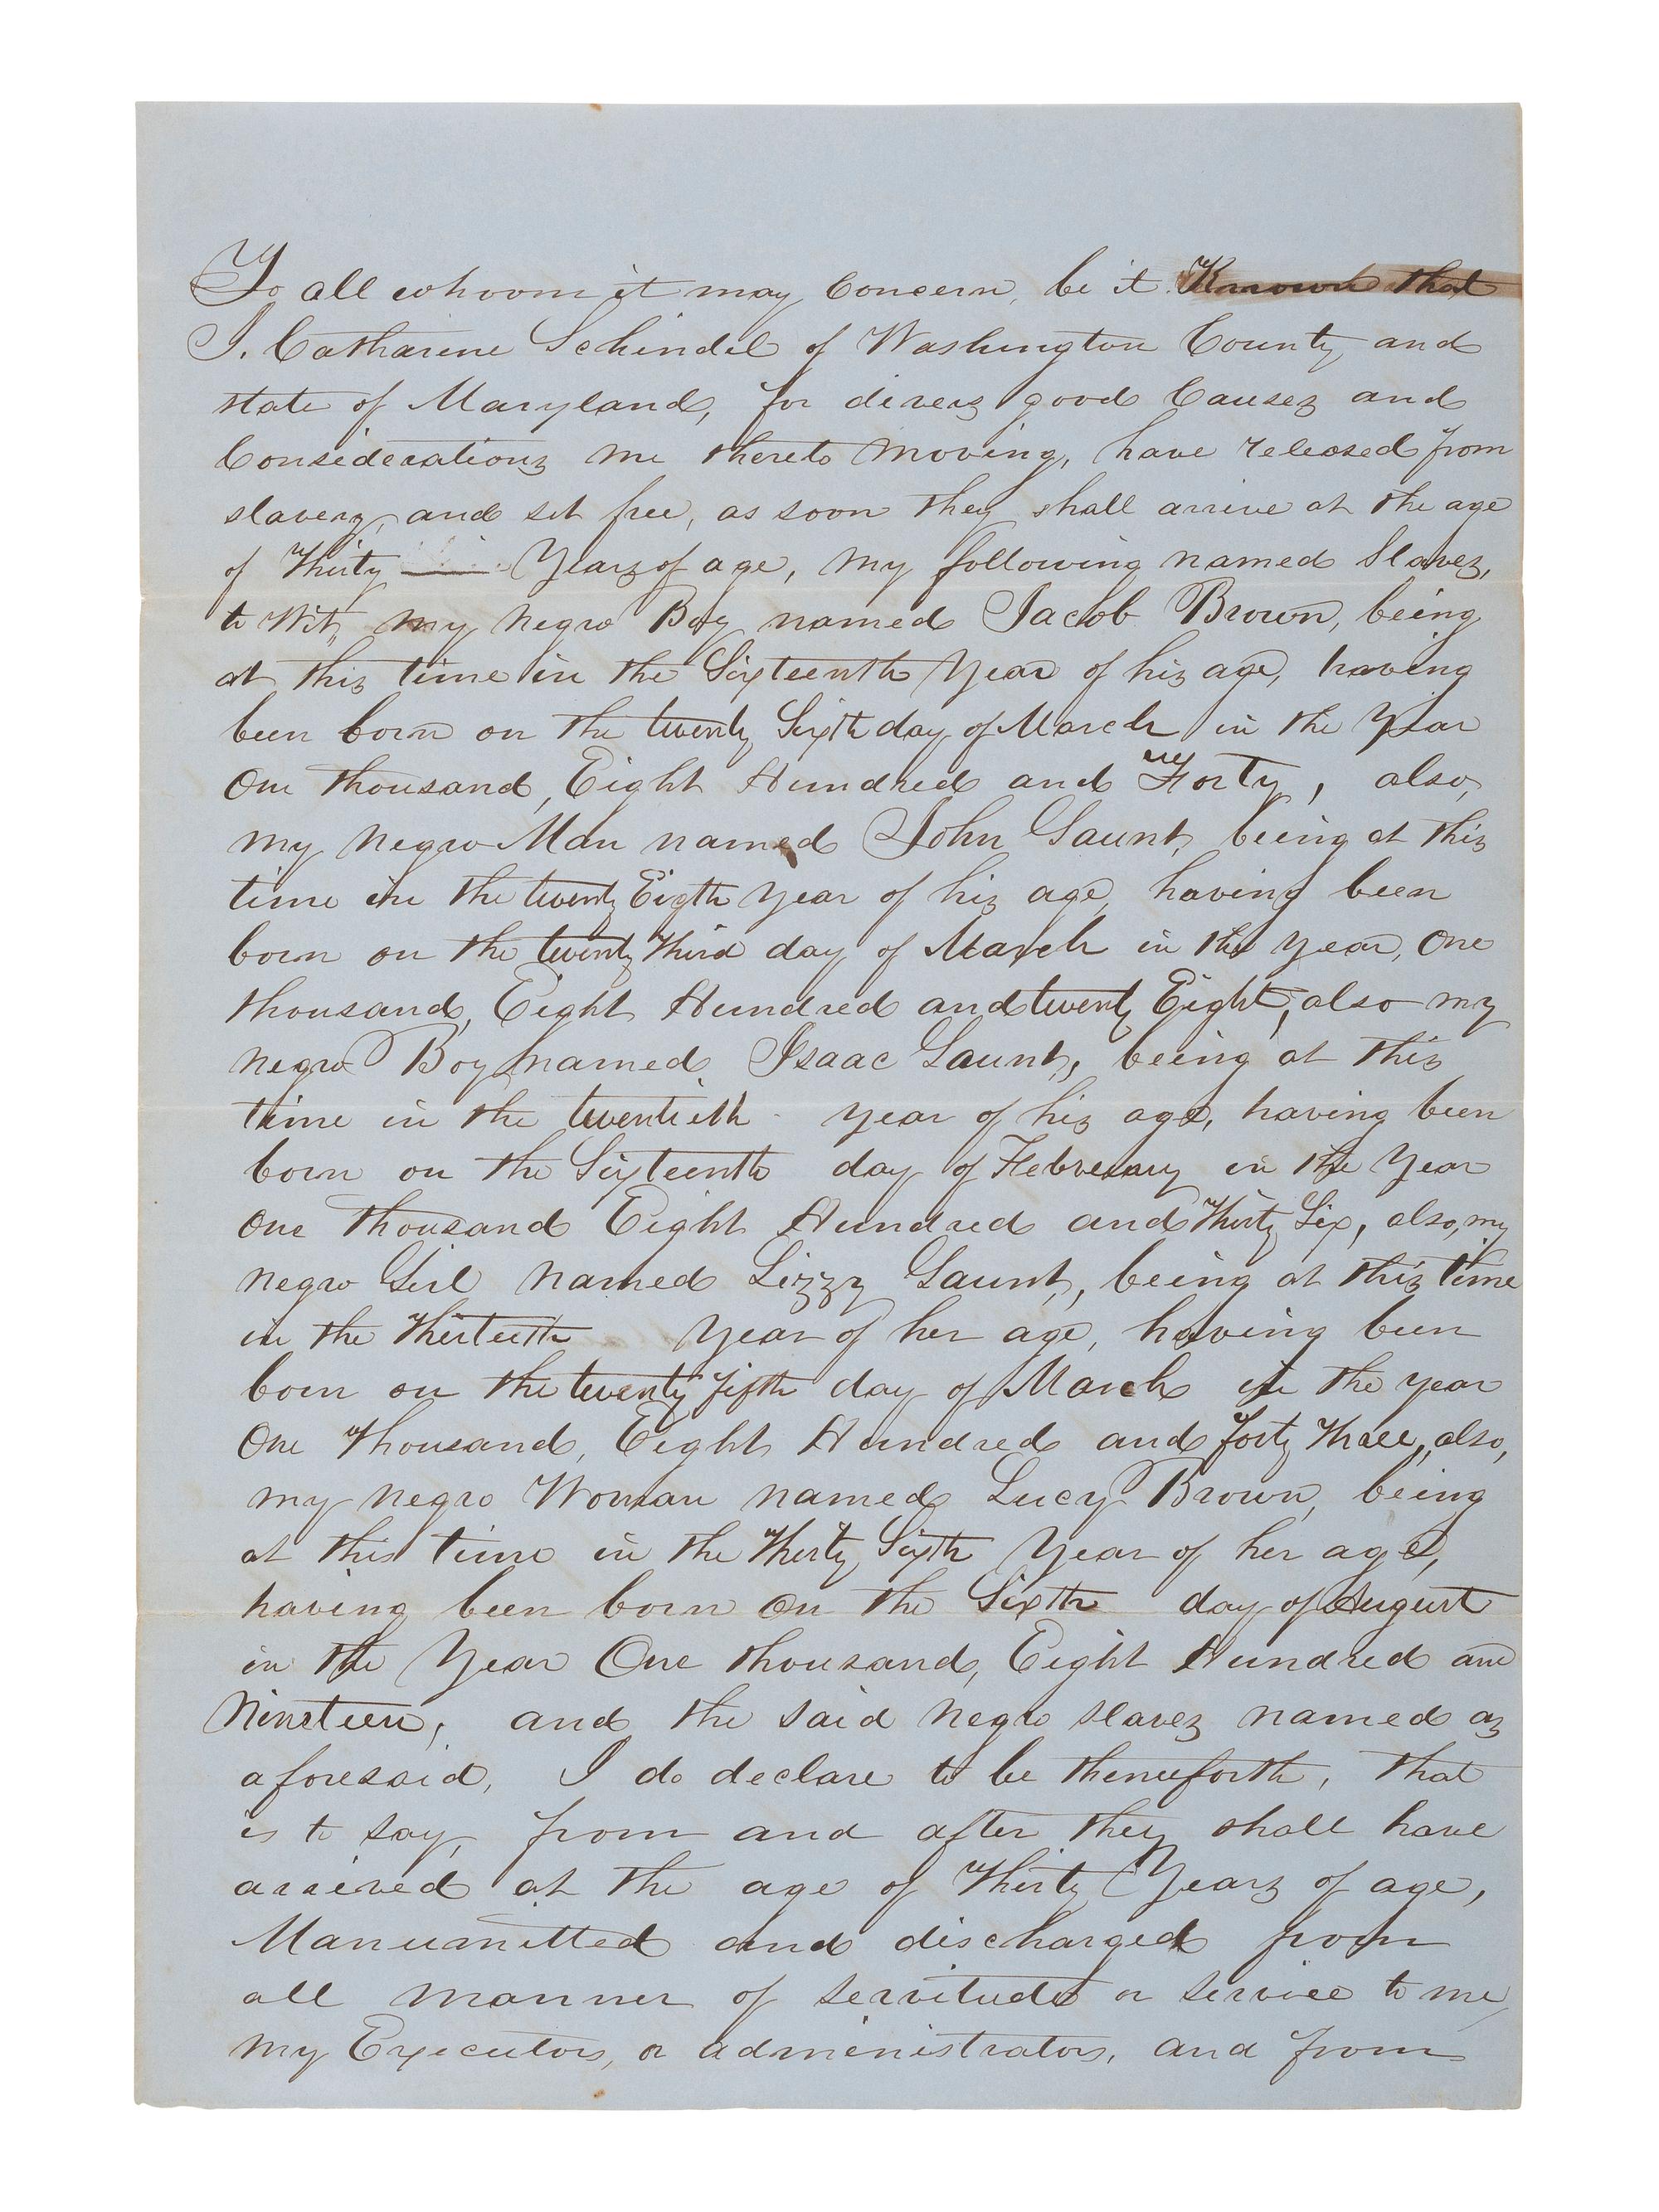 To all whoom it may Concern, be it Known that
I. Catharine Schindel of Washington County and
state of Maryland, for divers good Causes and
Considerations me thereto moving, have released from
slavery, and set free, as soon they shall arrive at the age
of Thirty —— Years of age, my following named Slaves,
to Wit, my negro Boy named Jacob Brown, being
at this time in the Sixteenth Year of his age, having
been born on the twenty Sixth day of March in the Year
One thousand, Eight Hundred and Forty, also,
my negro Man named John Gaunt, being at this
time in the twenty Eigth year of his age, having been
born on the twenty Third day of March in the year, One
thousand, Eight Hundred and twenty Eight, also my
negro Boy named Isaac Gaunt, being at this
time in the twentieth year of his age, having been
born on the Sixteenth day of February in the Year
One thousand Eight Hundred and Thirty Six, also, my
negro Girl named Lizzy Gaunt, being at this time
in the Thirteeth Year of her age, having been
born on the twenty fifth day of March in the year
One Thousand, Eight Hundred and forty Three, also,
my negro Woman named Lucy Brown, being
at this time in the Thirty Sixth Year of her age,
having been born on the Sixth day of August
in the Year One thousand, Eight Hundred and
Nineteen, and the said negro slaves named as
aforesaid, I do declare to be thenceforth, that
is to say, from and after they shall have
arrived at the age of Thirty Years of age,
Manumitted and discharged from
all manner of servitude or service to me,
my Executors, or administrators, and from